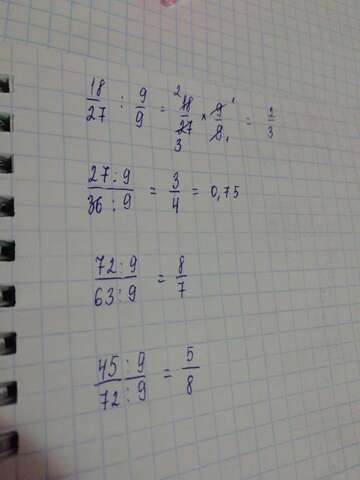 18/27 : 9/9 = 2 18/27 3 × 9/9 1 1 = 2/3
27:9/36:9 = 3/4 = 0,75
72:9/63:9 = 8/7
45:9/72:9 = 5/8